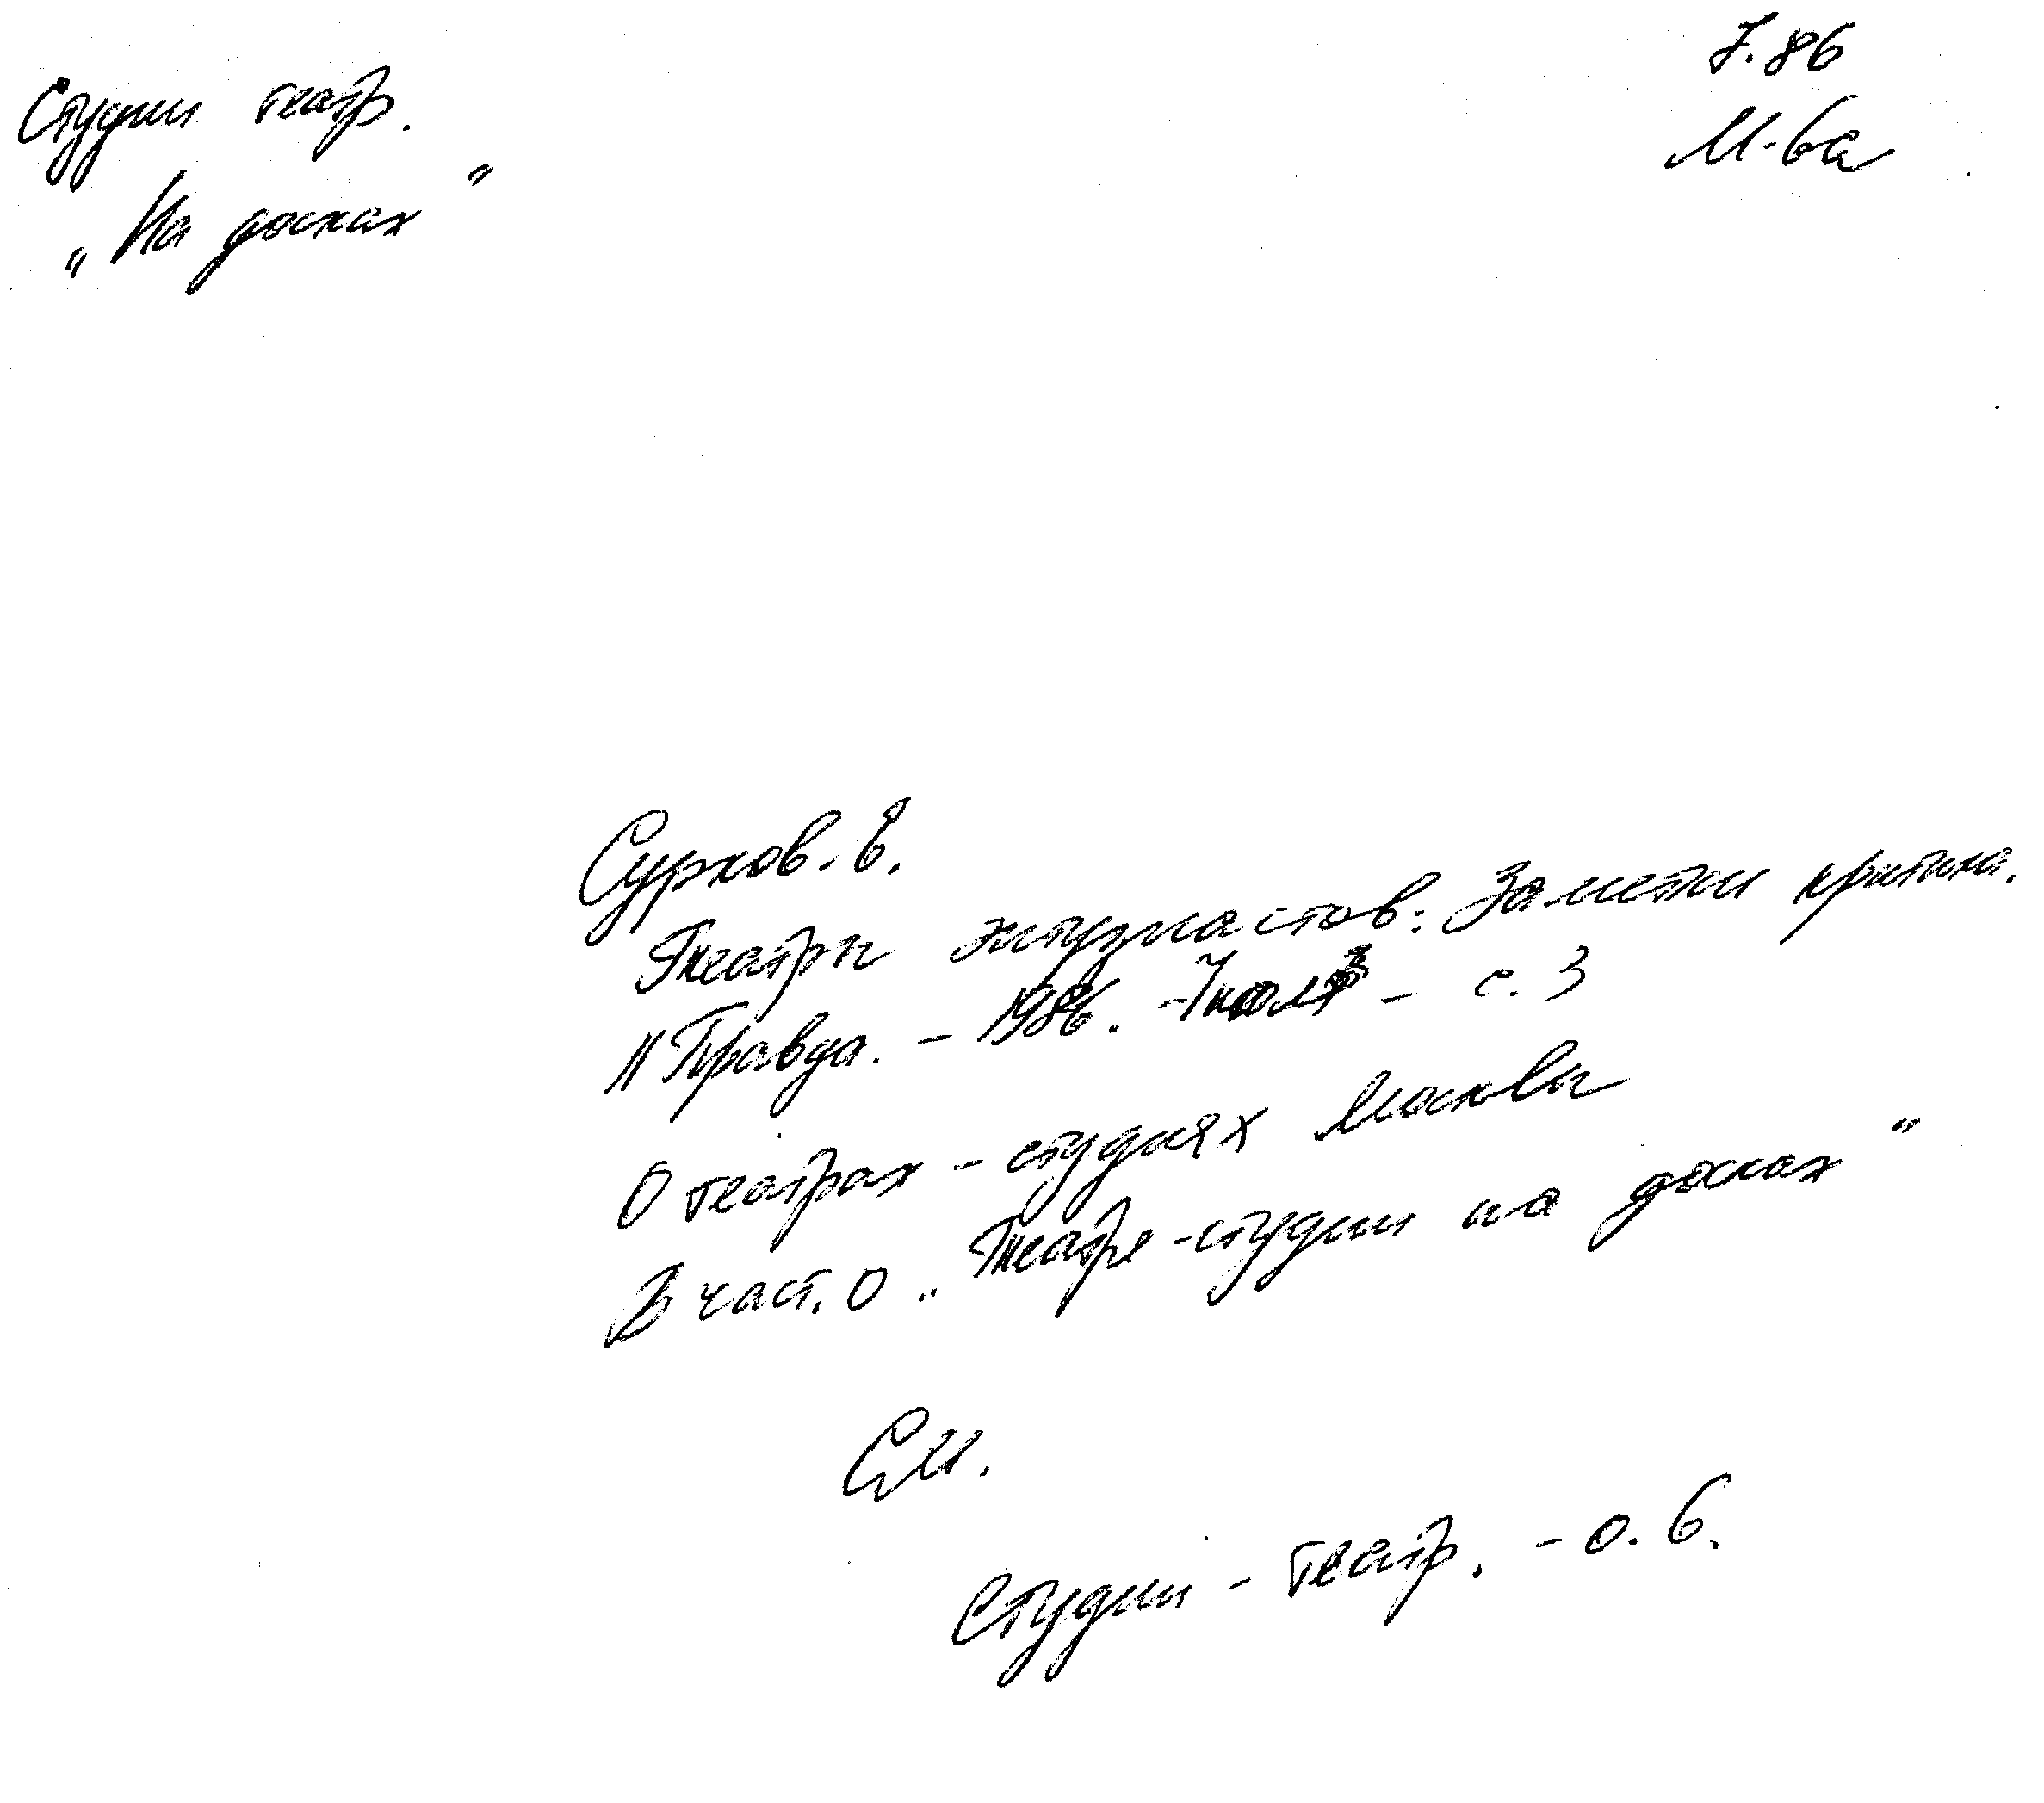 Студии театр.
„На досках"
7.86
М-ва
Сурков. В.
Театры энтузиастов: Заметки критика.
// Правда. – 1986. – 7 июля – с. 3
О театрах – студиях Москвы
В част. о „Театре-студии на досках"
См.
Студии – театр. – о. в.